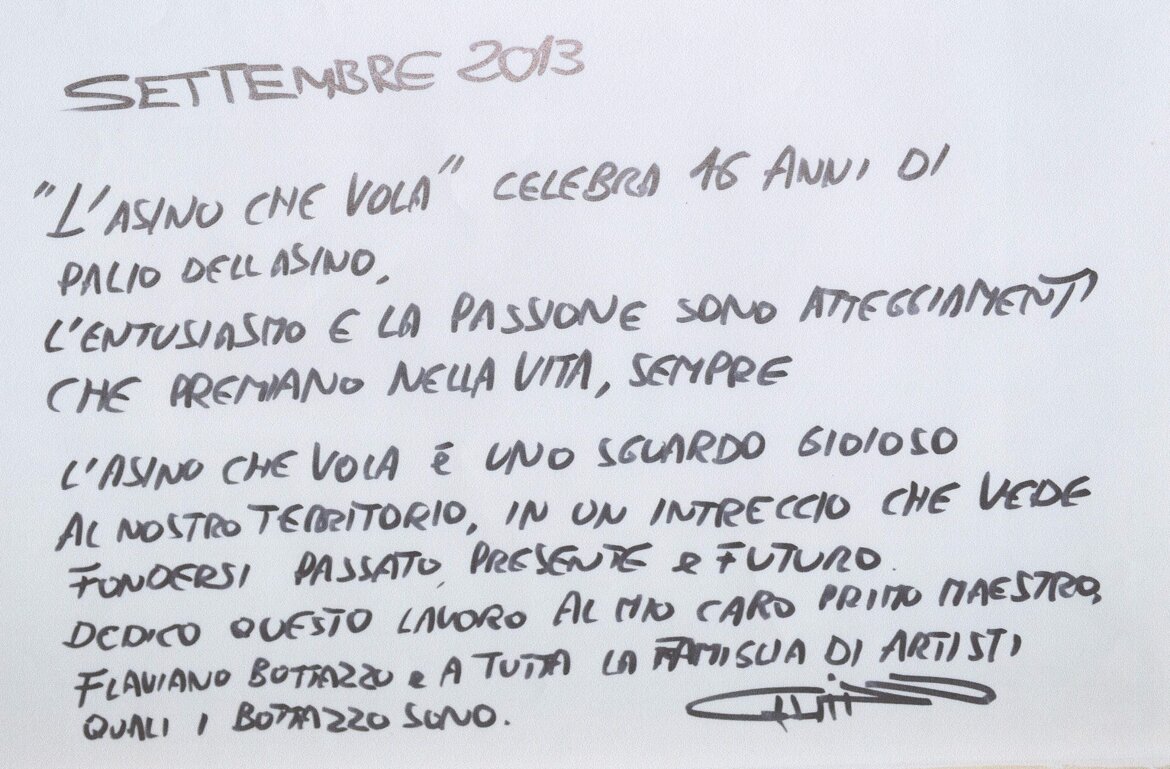 SETTEMBRE 2013
"L'ASINO CHE VOLA" CELEBRA 16 ANNI DI
PALIO DELL ASINO,
L'ENTUSIASMO E LA PASSIONE SONO ATTEGGIAMENTI
CHE PREMIANO NELLA VITA, SEMPRE
L'ASINO CHE VOLA È UNO SGUARDO GIOIOSO
AL NOSTRO TERRITORIO, IN UN INTRECCIO CHE VEDE
FONDERSI PASSATO, PRESENTE e FUTURO.
DEDICO QUESTO LAVORO AL MIO CARO PRIMO MAESTRO,
FLAVIANO BOTTAZZO e A TUTTA LA FAMIGLIA DI ARTISTI
QUALI I BOTTAZZO SONO.